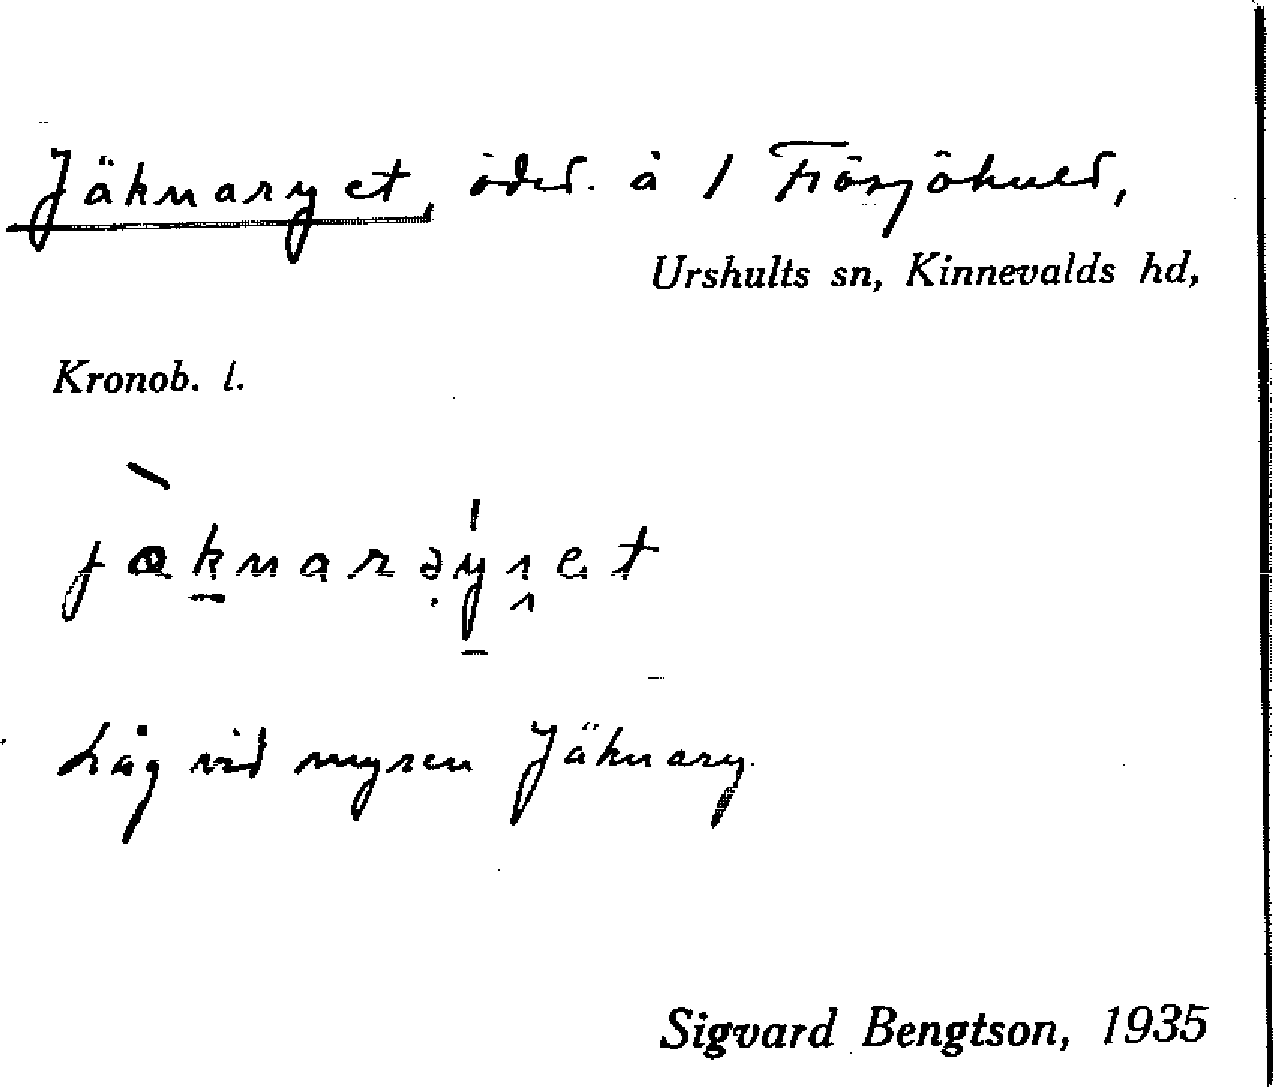 Jäknaryet, ödef. å 1 Fiösjöhult,
Urshults sn, Kinnevalds hd,
Kronob. l.
Låg vid myren Jäknary.
Sigvard Bengtson, 1935